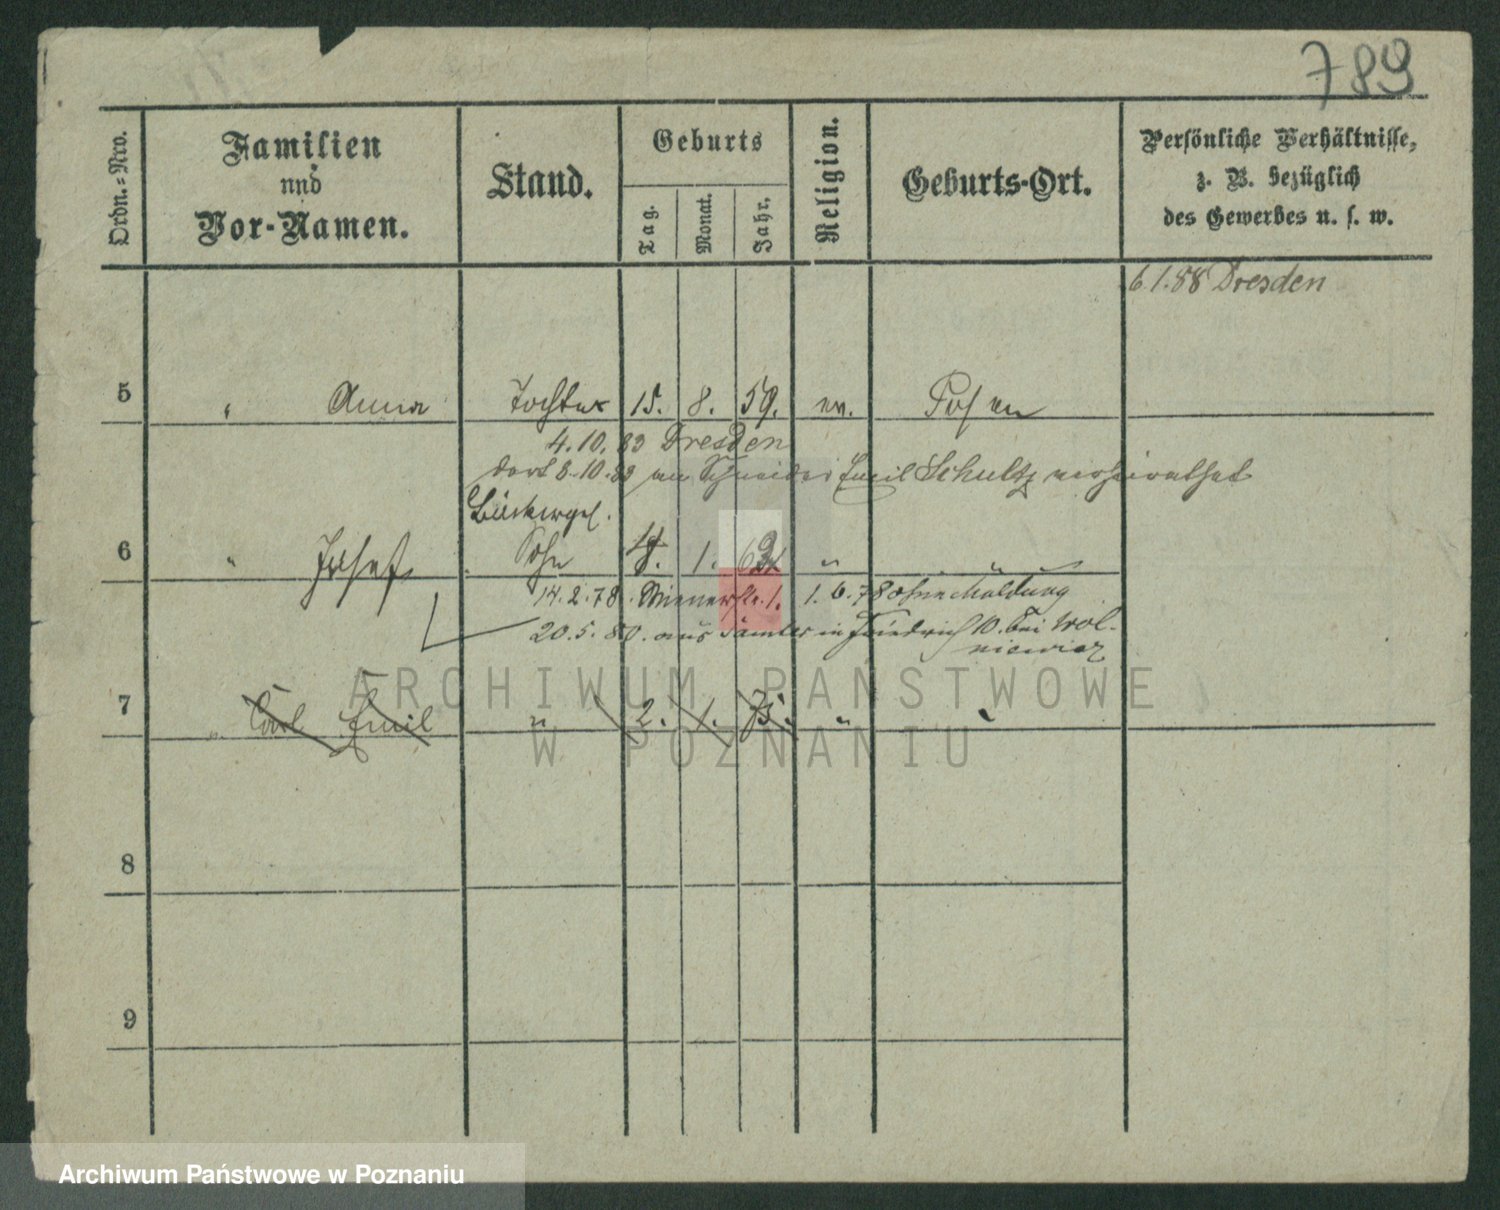 789
Ordn.-Nro.
Familien
und
Vor-Namen.
Stand.
Geburts
Tag.
Monat.
Jahr.
Religion.
Geburts-Ort.
Persönliche Verhältnisse,
z. B. bezüglich
des Gewerbes u. s. w.
6.1.88 Dresden
5 " Anna Tochter 15. 8. 59. ev. Posen
4.10.83 Dresden
dort 8.10.83 an Schneider Emil Schultz verheirathet
Bäckerges.
6 " Josef Sohn 1. " "
14.2.78. Wienerstr. 1. 1.6.78 ohne Meldung
20.5.80. aus Samter in Friedrich 10. bei Wol-
niewicz
7 " Carl Emil " 2. 1. 75. " "
8
9
ARCHIWUM PAŃSTWOWE
W POZNANIU
Archiwum Państwowe w Poznaniu